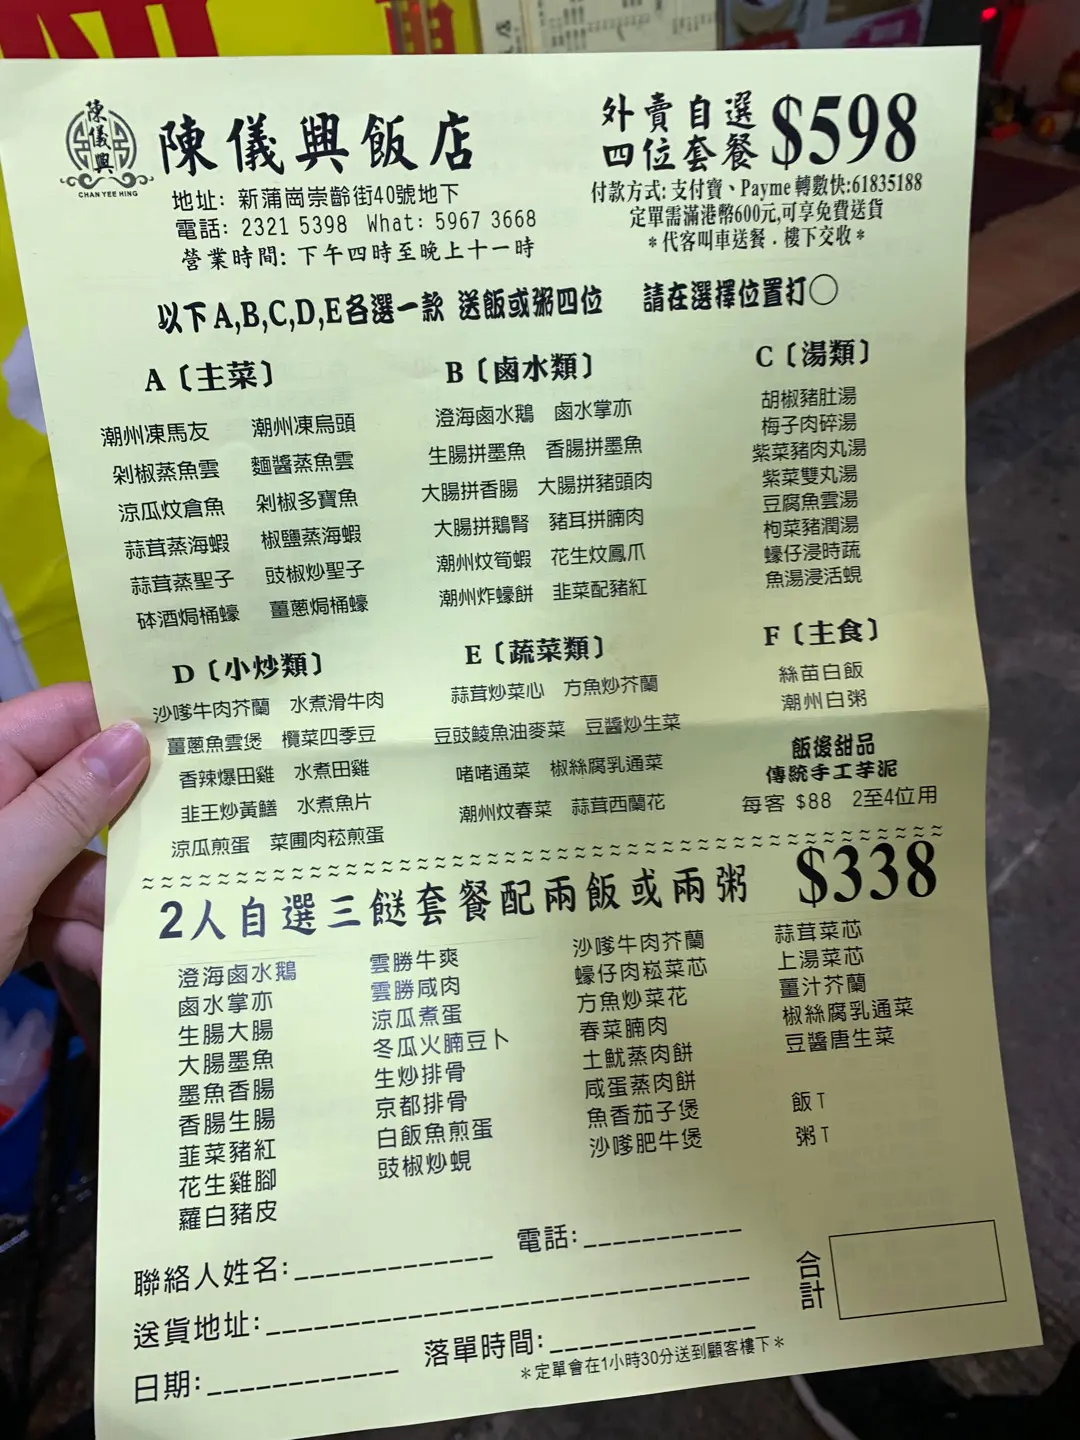 陳儀興
CHAN YEE HING
陳儀興飯店
地址: 新蒲崗崇齡街40號地下
電話: 2321 5398 What: 5967 3668
營業時間: 下午四時至晚上十一時
外賣自選
四位套餐 $598
付款方式: 支付寶、Payme 轉數快:61835188
定單需滿港幣600元,可享免費送貨
*代客叫車送餐.樓下交收*
以下A,B,C,D,E各選一款 送飯或粥四位 請在選擇位置打〇
A〔主菜〕
潮州凍馬友 潮州凍烏頭
剁椒蒸魚雲 麵醬蒸魚雲
涼瓜炆倉魚 剁椒多寶魚
蒜茸蒸海蝦 椒鹽蒸海蝦
蒜茸蒸聖子 豉椒炒聖子
砵酒焗桶蠔 薑蔥焗桶蠔
B〔鹵水類〕
澄海鹵水鵝 鹵水掌亦
生腸拼墨魚 香腸拼墨魚
大腸拼香腸 大腸拼豬頭肉
大腸拼鵝腎 豬耳拼腩肉
潮州炆筍蝦 花生炆鳳爪
潮州炸蠔餅 韭菜配豬紅
C〔湯類〕
胡椒豬肚湯
梅子肉碎湯
紫菜豬肉丸湯
紫菜雙丸湯
豆腐魚雲湯
枸菜豬潤湯
蠔仔浸時蔬
魚湯浸活蜆
D〔小炒類〕
沙嗲牛肉芥蘭 水煮滑牛肉
薑蔥魚雲煲 欖菜四季豆
香辣爆田雞 水煮田雞
韭王炒黃鱔 水煮魚片
涼瓜煎蛋 菜圃肉崧煎蛋
E〔蔬菜類〕
蒜茸炒菜心 方魚炒芥蘭
豆豉鯪魚油麥菜 豆醬炒生菜
啫啫通菜 椒絲腐乳通菜
潮州炆春菜 蒜茸西蘭花
F〔主食〕
絲苗白飯
潮州白粥
飯後甜品
傳統手工芋泥
每客 $88 2至4位用
2人自選三餸套餐配兩飯或兩粥 $338
澄海鹵水鵝
鹵水掌亦
生腸大腸
大腸墨魚
墨魚香腸
香腸生腸
韮菜豬紅
花生雞腳
蘿白豬皮
雲勝牛爽
雲勝咸肉
涼瓜煮蛋
冬瓜火腩豆卜
生炒排骨
京都排骨
白飯魚煎蛋
豉椒炒蜆
沙嗲牛肉芥蘭
蠔仔肉崧菜芯
方魚炒菜花
春菜腩肉
土魷蒸肉餅
咸蛋蒸肉餅
魚香茄子煲
沙嗲肥牛煲
蒜茸菜芯
上湯菜芯
薑汁芥蘭
椒絲腐乳通菜
豆醬唐生菜
飯T
粥T
聯絡人姓名:_____________ 電話:___________
送貨地址:__________________________________
日期:_____________ 落單時間:______________
合計
*定單會在1小時30分送到顧客樓下*